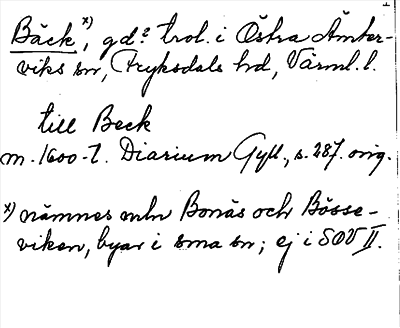 Bäck x), gd? trol. i Östra Ämter-
viks sn, Fryksdals hd, Värml. l.
till Beck
m. 1600-t. Diarium Gyll., s. 287. orig.
x) nämnes mln Bonäs och Bösse-
viken, byar i sma sn; ej i SOV II.